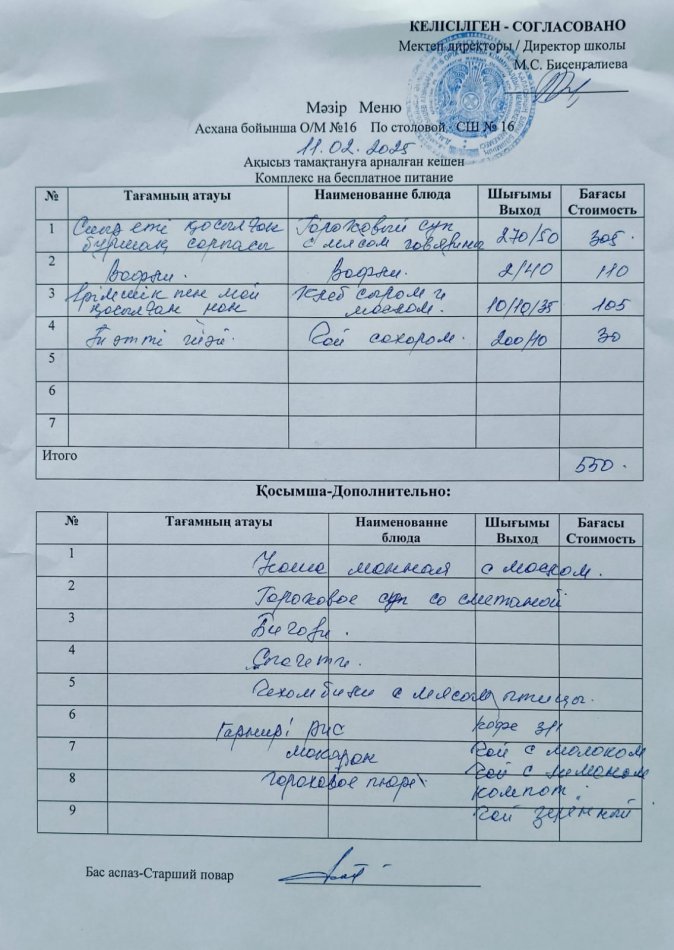 КЕЛІСІЛГЕН - СОГЛАСОВАНО
Мектеп директоры / Директор школы
М.С. Бисенгалиева
Мәзір Меню
Асхана бойынша О/М №16 По столовой СШ № 16
11.02.2025
Ақысыз тамақтануға арналған кешен
Комплекс на бесплатное питание
№ Тағамның атауы Наименованне блюда Шығымы Выход Бағасы Стоимость
1 Сиыр еті қосылған бұршақ сорпасы Гороховый суп с мясом говядина 270/50 305.
2 Вафли. Вафли. 2/40 110
3 Ірімшік пен май қосылған нан Хлеб сыром и маслом. 10/10/35 105
4 Тәтті шәй. Чай сахаром. 200/10 30
5
6
7
Итого 550.
Қосымша-Дополнительно:
№ Тағамның атауы Наименованне блюда Шығымы Выход Бағасы Стоимость
1 Каша манная с маслом.
2 Гороховое суп со сметаной
3 Бигоди.
4 Спагетти.
5 с мясом птицы.
6 Гарнир: рис кофе 3/1
7 макарон чай с молоком
8 гороховое пюре чай с лимоном
компот
9 чай зеренный
Бас аспаз-Старший повар